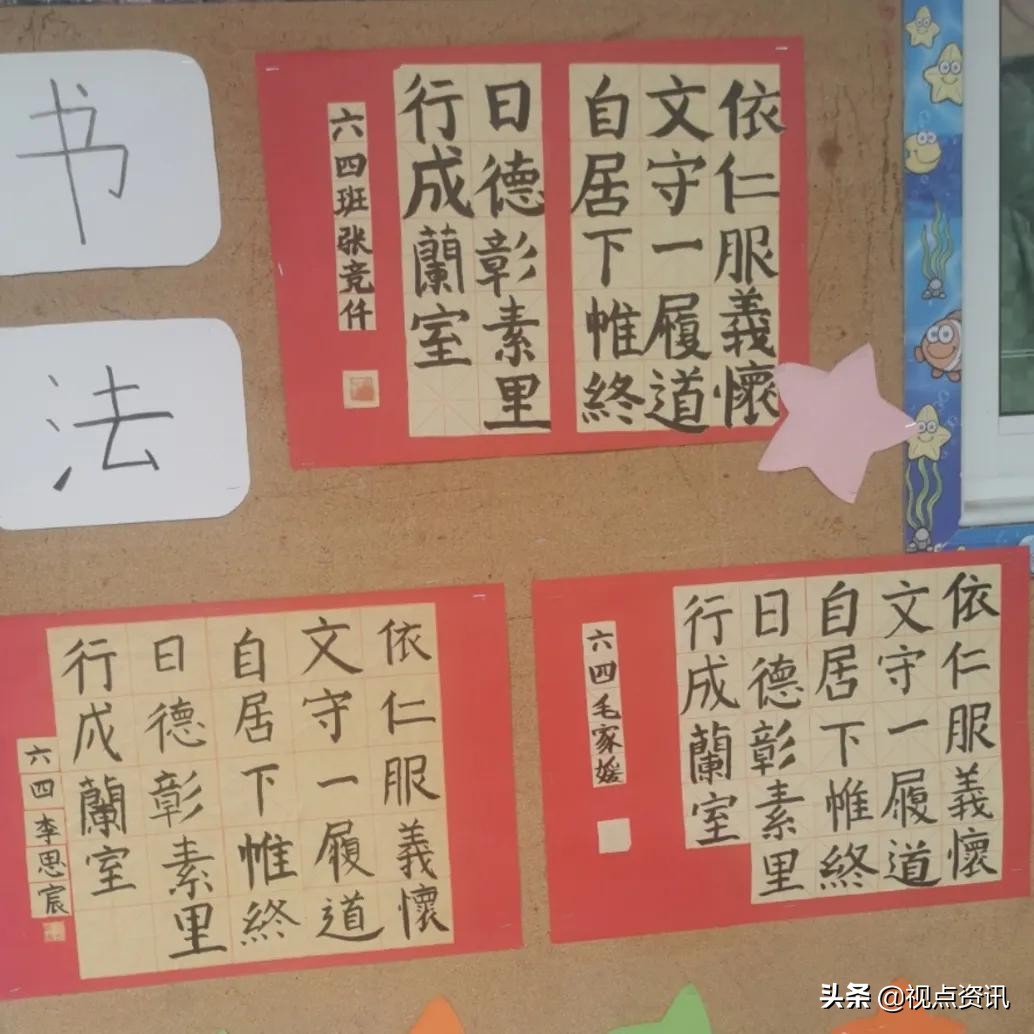 书
法
依仁服義懷
文守一履道
自居下帷終
日德彰素里
行成蘭室
六四班张竞仟
依仁服義懷
文守一履道
自居下帷終
日德彰素里
行成蘭室
六四李思宸
依仁服義懷
文守一履道
自居下帷終
日德彰素里
行成蘭室
六四毛家媛
头条 @视点资讯